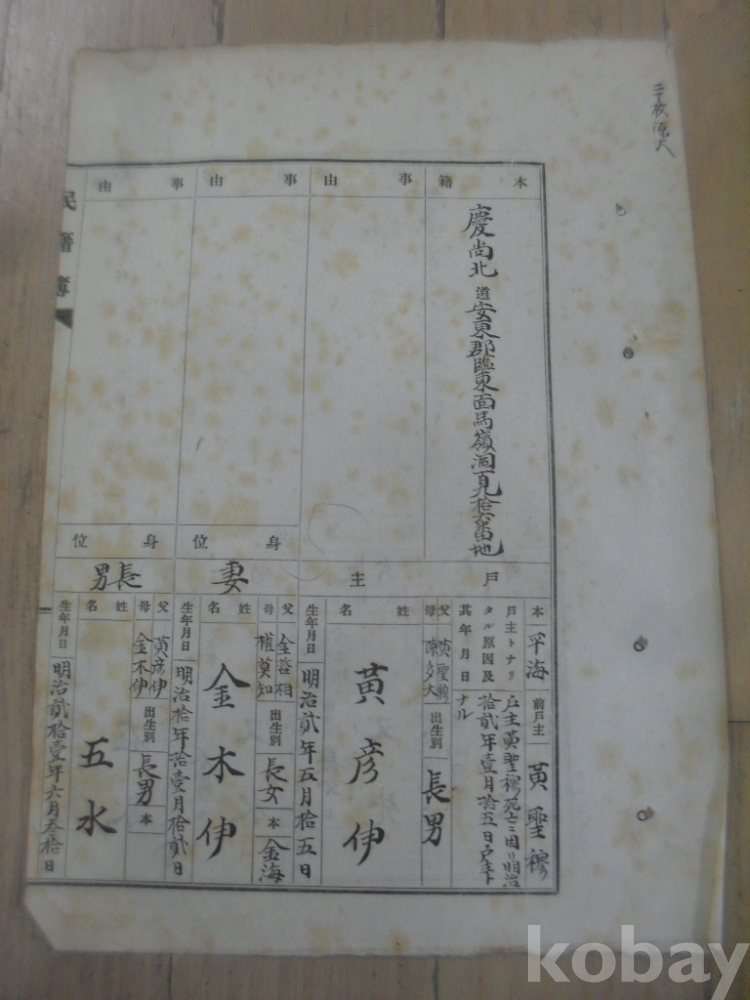 本籍
慶尚北道安東郡臨東面馬嶺洞百九拾六番地
戶主
本
平海
前戶主
黃聖穆
戶主トナリタル原因及其年月日
戶主黃聖穆死亡ニ因リ明治拾貳年壹月拾五日戶主トナル
事由
父
黃聖穆
母
出生別
長男
姓名
黃彦伊
生年月日
明治貳年五月拾五日
事由
身位
妻
父
母
權莫知
出生別
長女
本
金海
姓名
金木伊
生年月日
明治拾年拾壹月拾貳日
事由
身位
長男
父
黃彦伊
母
金木伊
出生別
長男
本
姓名
五水
生年月日
明治貳拾壹年六月叁拾日
民籍簿
kobay